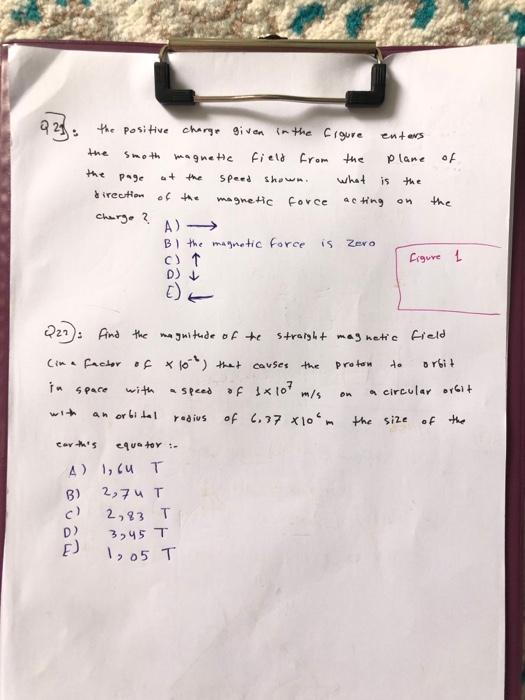 Q21): the positive charge given in the figure enters
the smoth magnetic field from the plane of
the page at the speed shown. What is the
direction of the magnetic force acting on the
charge?
A) →
B) the magnetic force is zero
C) ↑
D) ↓
E) ←
figure 1
Q22): find the magnitude of the straight magnetic field
(in a factor of x 10⁻⁸) that causes the proton to orbit
in space with a speed of 1x10⁷ m/s on a circular orbit
with an orbital radius of 6,37 x10⁶m the size of the
earth's equator :-
A) 1,64 T
B) 2,74 T
C) 2,83 T
D) 3,45 T
E) 1,05 T